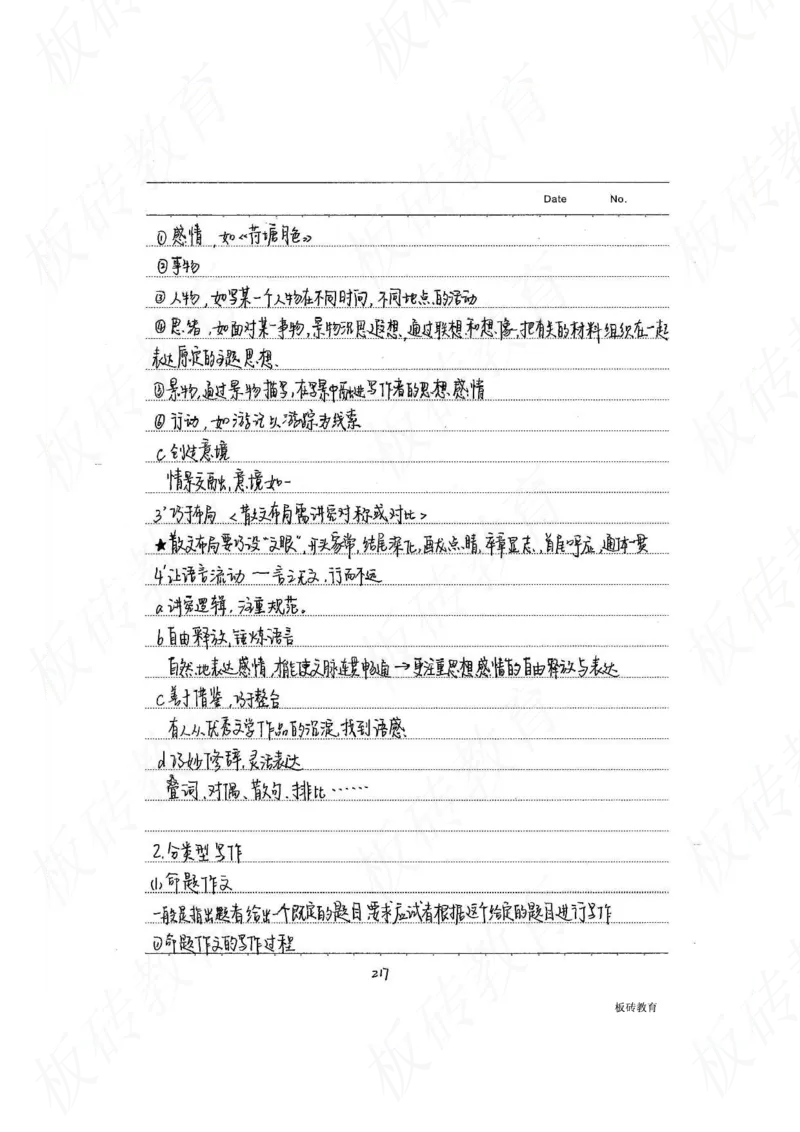 Date No.
①感情，如《荷塘月色》
②事物
③人物，如写某一个人物在不同时间，不同地点的活动
④思绪，如面对某一事物，景物浮思遐想，通过联想和想像，把有关的材料组织在一起
表达原定的主题思想.
⑤景物，通过景物描写，在写景中融进写作者的思想感情
⑥行动，如游记以游踪为线索
c 创造意境
情景交融，意境如一
3'巧于布局 <散文布局需讲究对称或对比>
★散文布局要巧设"文眼"，开头家常，结尾深化，画龙点睛，卒章显志，首尾呼应，通体一贯
4'让语言流动 — 言之无文，行而不远
a 讲究逻辑，注重规范。
b 自由释放，锤炼语言
自然地表达感情，才能使文脉连贯畅通→更注重思想感情的自由释放与表达
c 善于借鉴，巧于整合
有人从优秀文学作品的沉淀，找到语感
d 巧妙修辞，灵活表达
叠词、对偶、散句、排比……
2.分类型写作
(1)命题作文
一般是指出题者给出一个既定的题目要求应试者根据这个给定的题目进行写作
①命题作文的写作过程
217
板砖教育